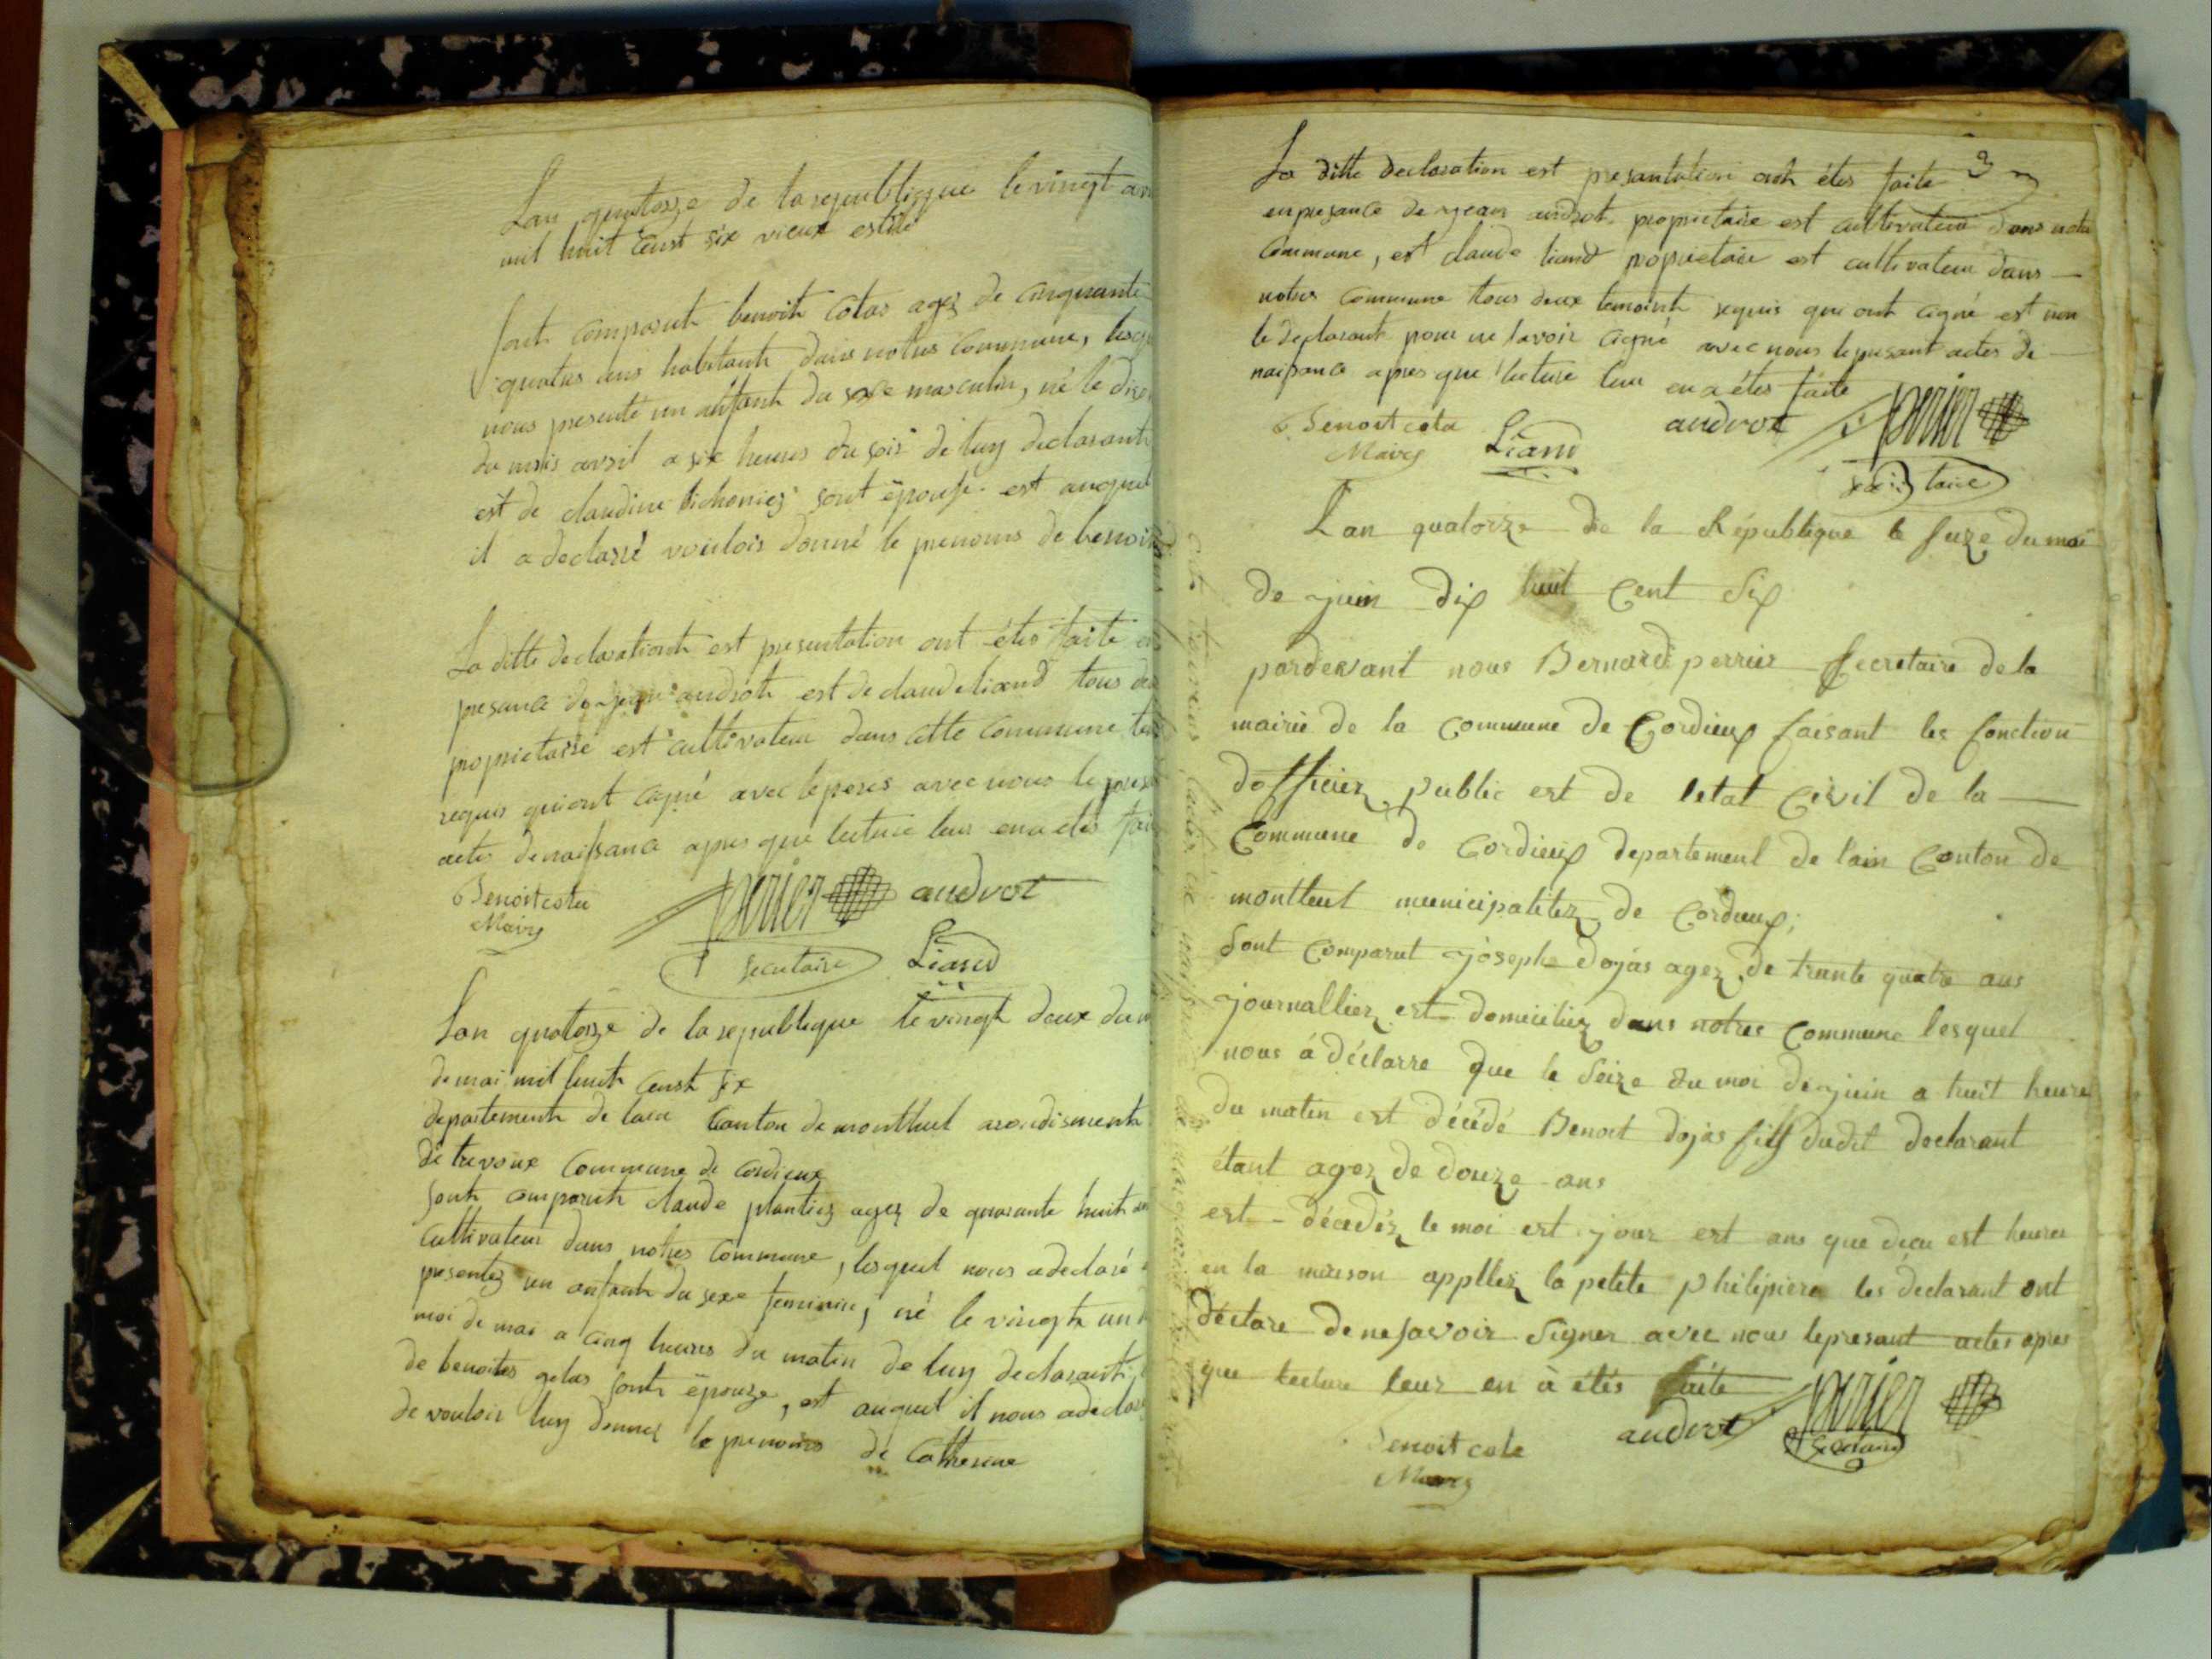 Lan quatorze de la republique le vingt
mil huit cent six vieux estile
sont comparut benoit Cotas agez de cinquante
quatres ans habitant dans notres Commune, lesq
nous presente un anfant du sexe masculin, né le dix
du mois avril a six heures du soir de luy declarant
est de claudine sont épouse est auquel
il a declaré voulois donné le prenoms de benoi
La ditte declarationt est presentation ont étes faite
presance de jean androt est de claude liand tous de
proprietaire est cultivateur dans cette Commune
requis quiont cigné avec le peres avec nous le prese
actes de naissance apres que lecture leur en a etes fai
Benoit cota perier audrot
Maire
secretaire Liand
Lan quatorze de la republique le vingt deux du m
de mai mil huit cent six
departement de lain Canton de montluel arondisment
de trevoux Commune de Cordieux
sont comparut claude plantiez agez de quarante huit an
Cultivateur dans notres Commune, lesquel nous a declaré
presentez un anfant du sexe feminin, né le vingt un
moi de mai a cinq heures du matin de luy declarant
de benoites gelas sont épouze, est auquel il nous a decla
de vouloir luy donner le prenoms de Catherine
La ditte declaration est presantation ont étes faite 3
en presance de jean androt proprietaire est cultivateur dans notre
Commune, est claude liand proprietaire est cultivateur dans
notres Commune tous deux temoint requis qui ont cigné est non
le declarant pour ne savoir cigné avec nous le presant actes de
naissance apres que lecture leur en a étes faite
Benoit cota Liand audrot perier
Maire
Lan quatorze de la République le seize du moi
de juin dix huit Cent Six
pardevant nous Bernard perrier secretaire de la
mairie de la Commune de Cordieux faisant les fonction
dofficier public est de letat Civil de la
Commune de Cordieux departement de l'ain Conton de
montluel municipalitez de Cordieux;
Sont Comparut joseph Dojas agez de trante quatre ans
journallier est domicilier dans notres Commune lesquel
nous à déclarre que le Seize du moi de juin a huit heure
du matin est décédé Benoit dojas fils dudit declarant
étant agez de douze ans
est décédéz le moi est jour est ans que decu est heures
en la maison appllez la petite philipiere les declarant ont
déclare de ne savoir Signer avec nous le presant actes apres
que lecture leur en à étés faite
Benoit cota audrot perier
Maire secretaire